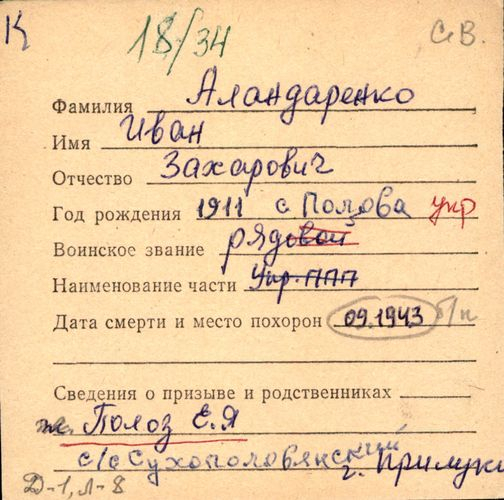 К 18/34 С.В.
Фамилия Аландаренко
Имя Иван
Отчество Захарович
Год рождения 1911 с Полова укр
Воинское звание рядовой
Наименование части Укр. ППП
Дата смерти и место похорон 09.1943 б/п
Сведения о призыве и родственниках
Полоз Е.Я
с/с Сухополовянский
г. Прилуки
Д-1, Л-8